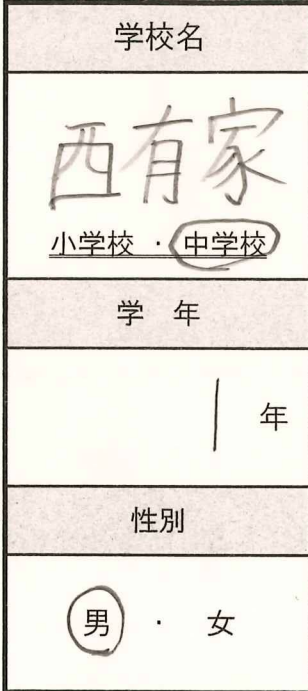 学校名
西有家
小学校 ・ 中学校
学 年
1 年
性別
男 ・ 女